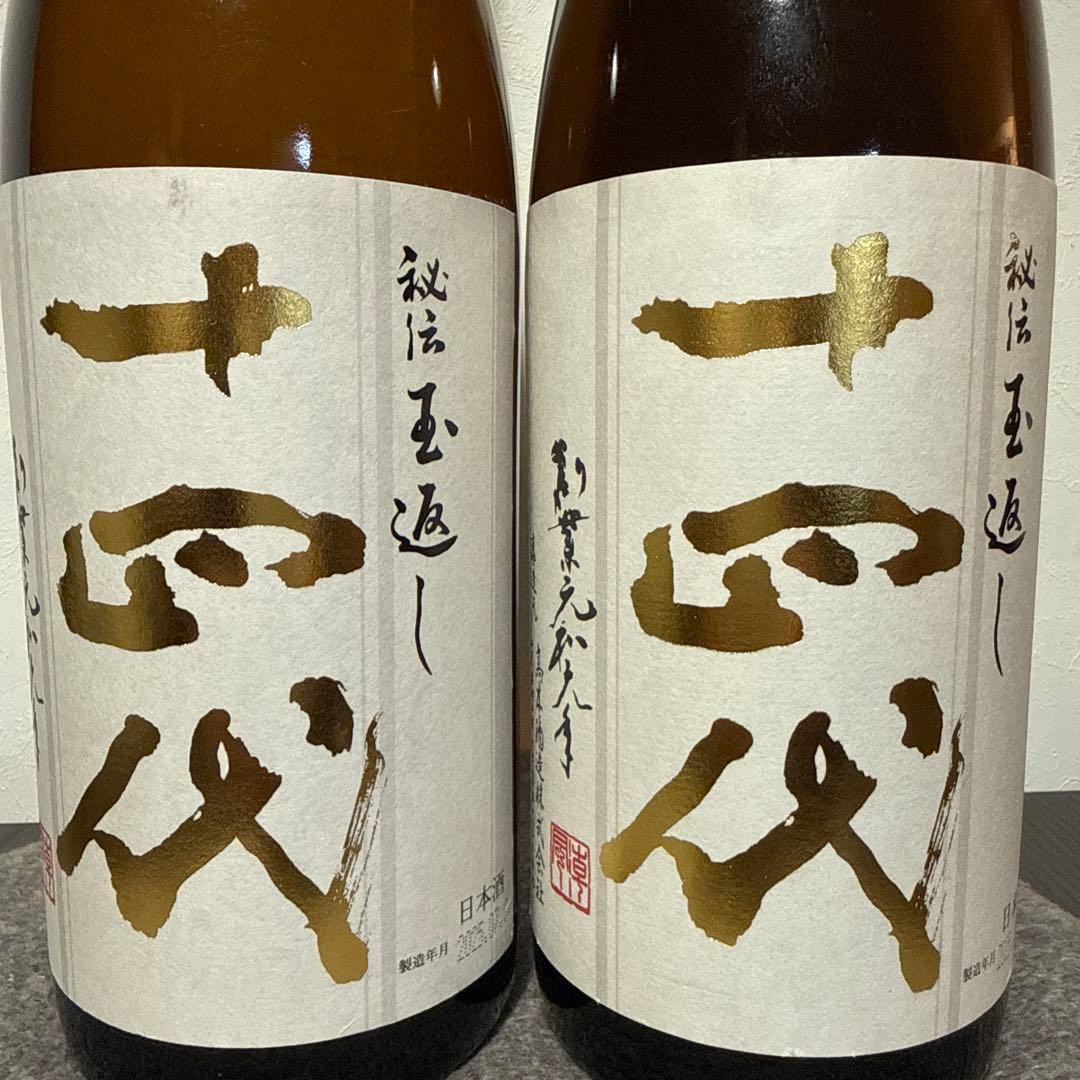 秘伝玉返し
十四代
日本酒
製造年月
秘伝玉返し
十四代
創業元和元年
高木酒造株式会社
製造年月